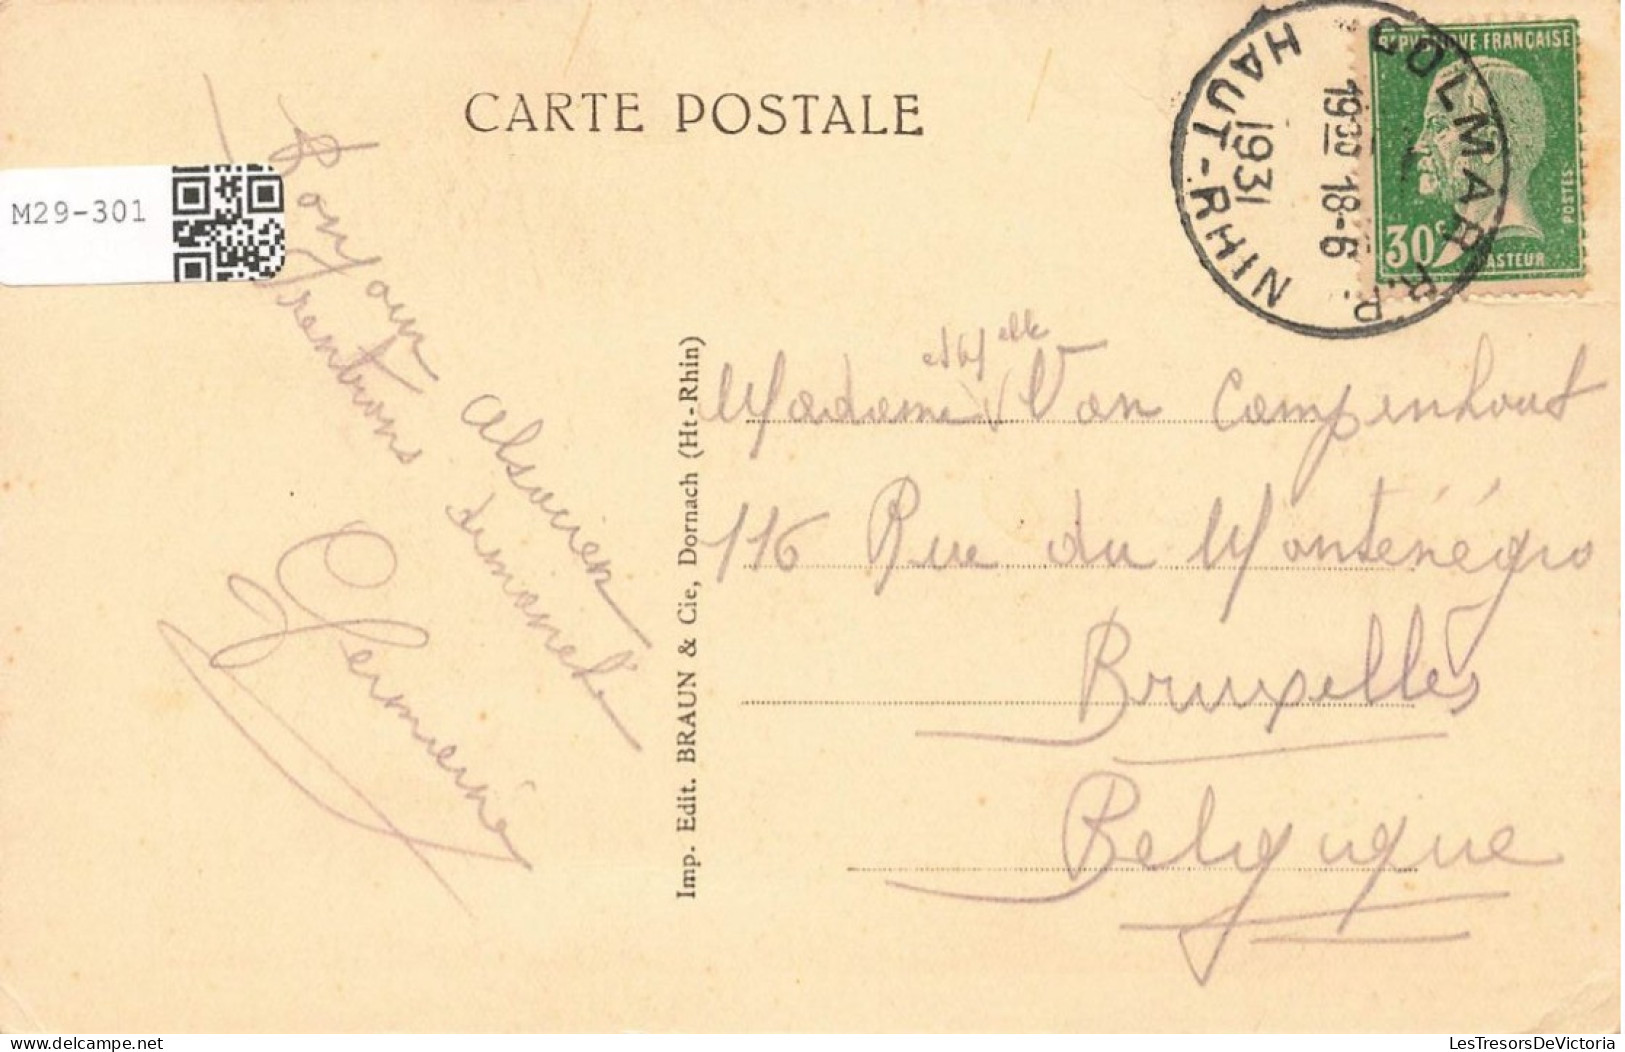 CARTE POSTALE
M29-301
COLMAR R.P.
HAUT-RHIN
1931
1930 18-6
REPUBLIQUE FRANÇAISE
POSTES
30c
PASTEUR
Bonjour alsacien
Trentrons dimanche
Germaine
Imp. Edit. BRAUN & Cie, Dornach (Ht-Rhin)
et Melle
Madame Van Campenhout
116 Rue du Monténégro
Bruxelles
Belgique
delcampe.net
LesTresorsDeVictoria